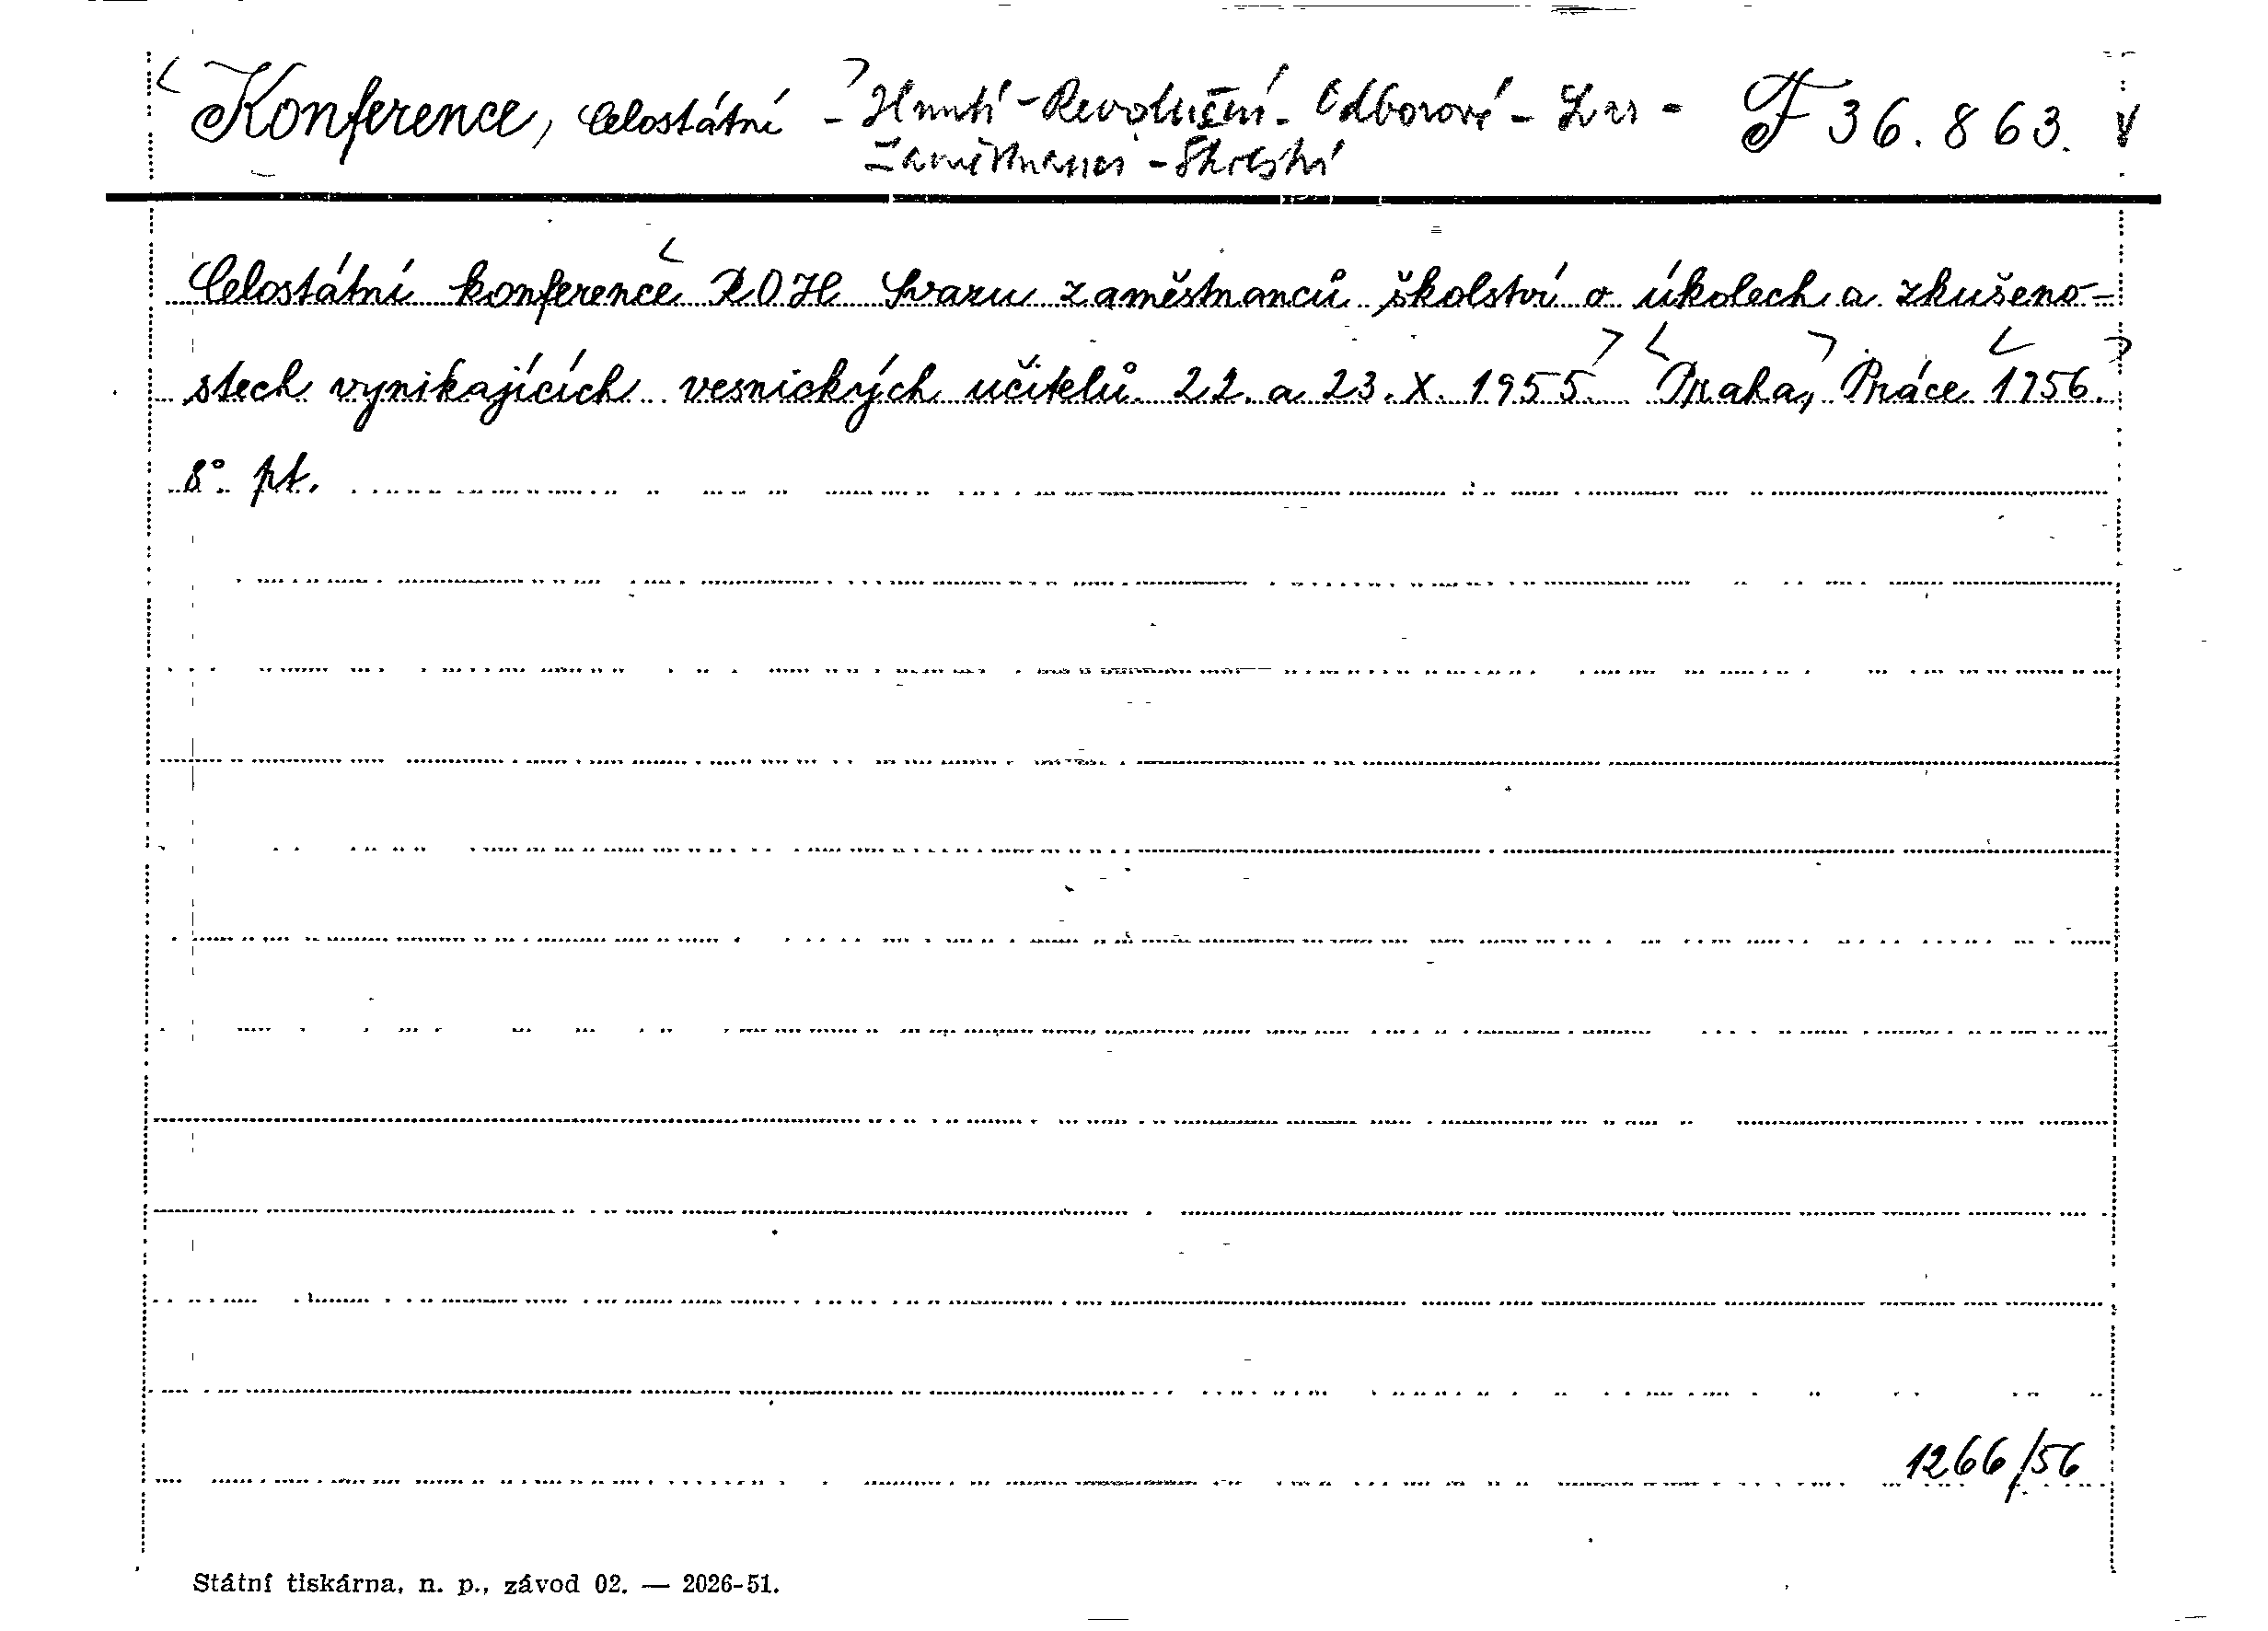 Konference, celostátní - Hnutí - Revoluční - Odborové - Svaz - F 36.863.
Zaměstnanci - Školství
Celostátní konference ROH Svazu zaměstnanců školství o úkolech a zkušeno-
stech vynikajících vesnických učitelů 22. a 23. X. 1955. Praha, Práce 1956.
8° pt.
1266/56
Státní tiskárna, n. p., závod 02. — 2026-51.